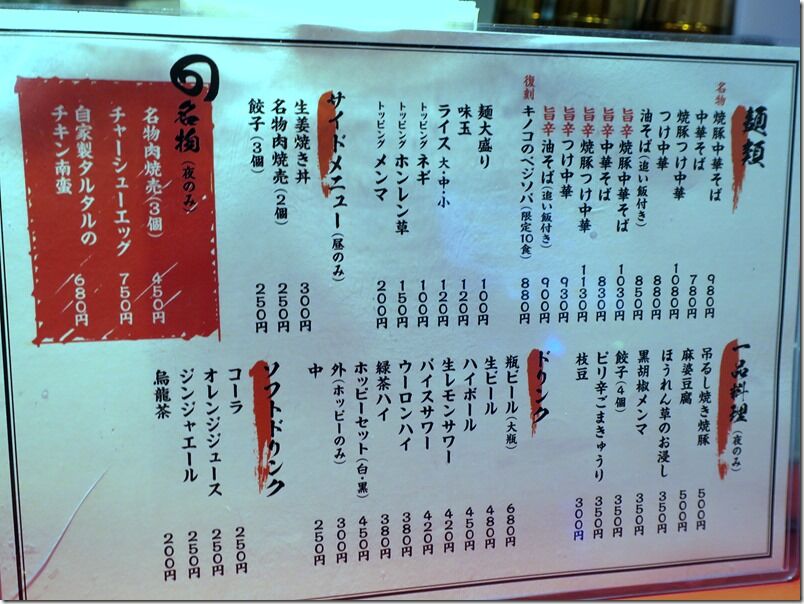 麺類
名物 焼豚中華そば 980円
中華そば 780円
焼豚つけ中華 1080円
つけ中華 880円
油そば(追い飯付き) 850円
旨辛焼豚中華そば 1030円
旨辛中華そば 830円
旨辛焼豚つけ中華 1130円
旨辛つけ中華 930円
旨辛油そば(追い飯付き) 900円
復刻 キノコのベジソバ(限定10食) 880円
麺大盛り 100円
味玉 120円
ライス 大・中・小 120円
トッピング ネギ 100円
トッピング ホンレン草 150円
トッピング メンマ 200円
サイドメニュー(昼のみ)
生姜焼き丼 300円
名物肉焼売(2個) 250円
餃子(3個) 250円
旬 名物(夜のみ)
名物肉焼売(3個) 450円
チャーシューエッグ 750円
自家製タルタルの
チキン南蛮 680円
一品料理(夜のみ)
吊るし焼き焼豚 500円
麻婆豆腐 500円
ほうれん草のお浸し 350円
黒胡椒メンマ 350円
餃子(4個) 350円
ピリ辛ごまきゅうり 350円
枝豆 300円
ドリンク
瓶ビール(大瓶) 680円
生ビール 480円
ハイボール 450円
生レモンサワー 420円
バイスサワー 420円
ウーロンハイ 380円
緑茶ハイ 380円
ホッピーセット(白・黒) 450円
外(ホッピーのみ) 300円
中 250円
ソフトドリンク
コーラ 250円
オレンジジュース 250円
ジンジャエール 250円
烏龍茶 200円